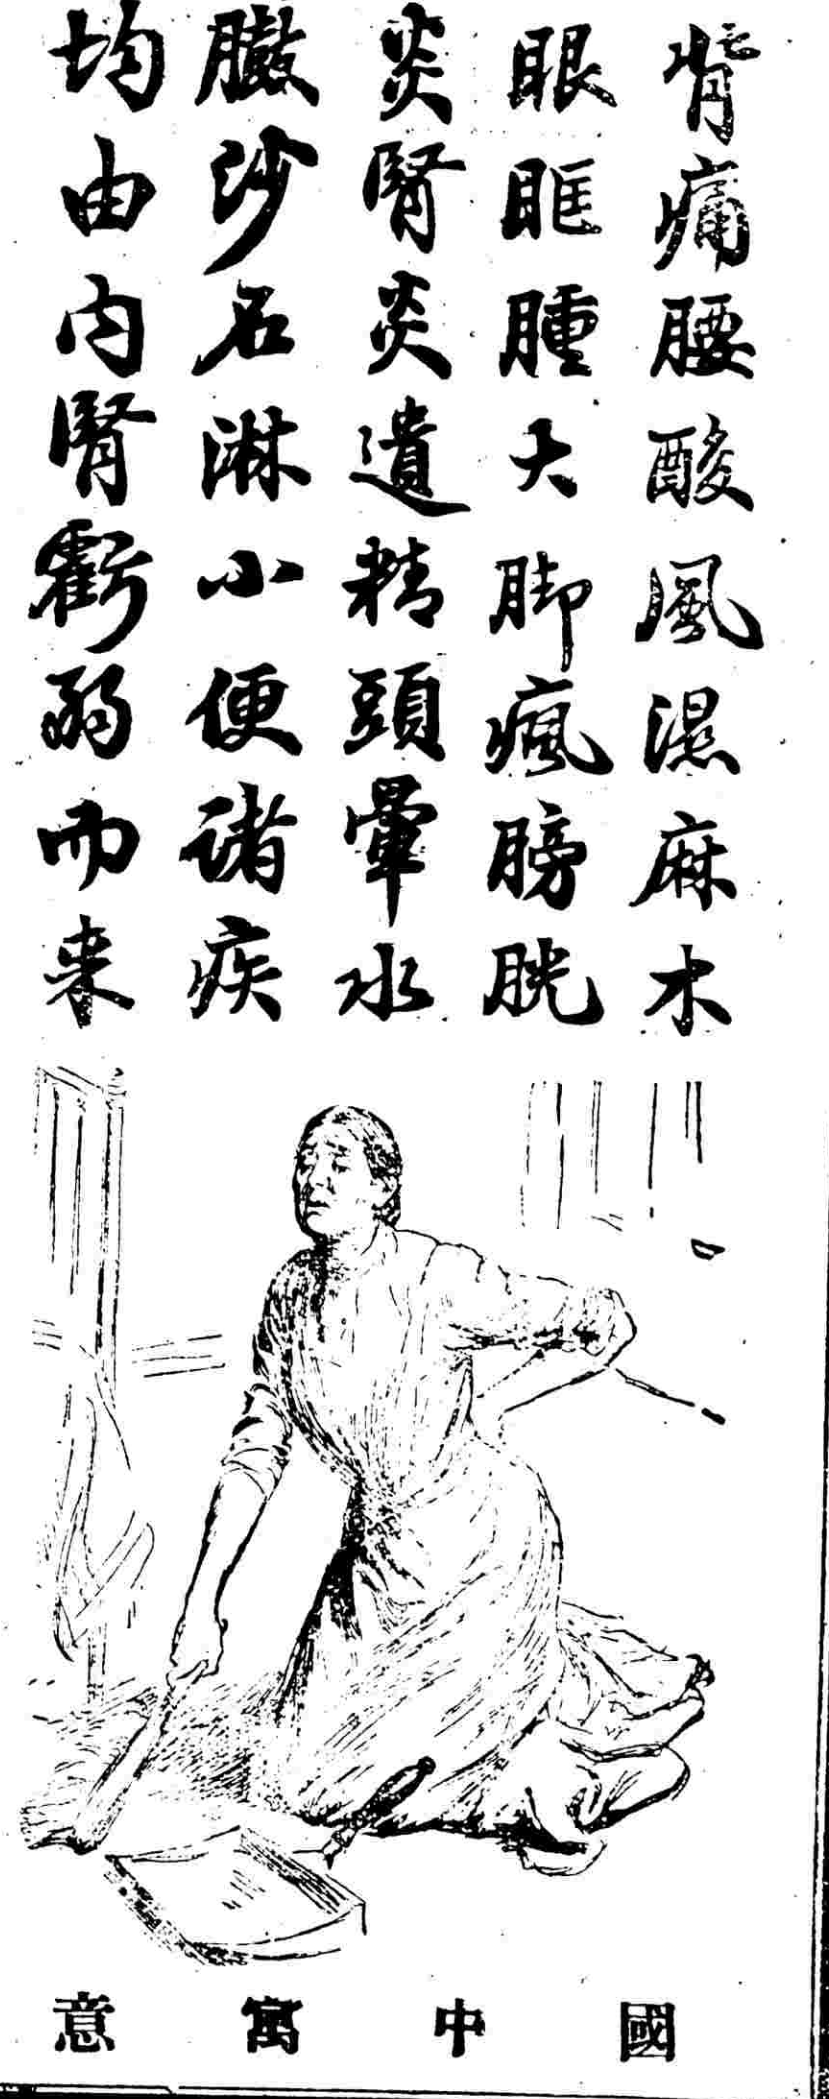 背痛腰酸風濕麻木
眼眶腫大脚瘋膀胱
炎腎炎遺精頭暈水
臌沙石淋小便諸疾
均由內腎虧弱而来
國中寓意